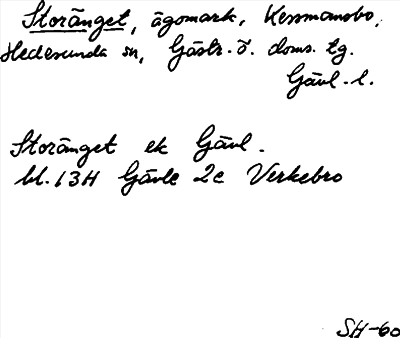 Storänget, ägomark, Kessmansbo,
Hedesunda sn, Gästr. ö. doms. tg.
Gävl. l.
Storänget ek Gävl.
bl. 13H Gävle 2c Verkebro
SH-60